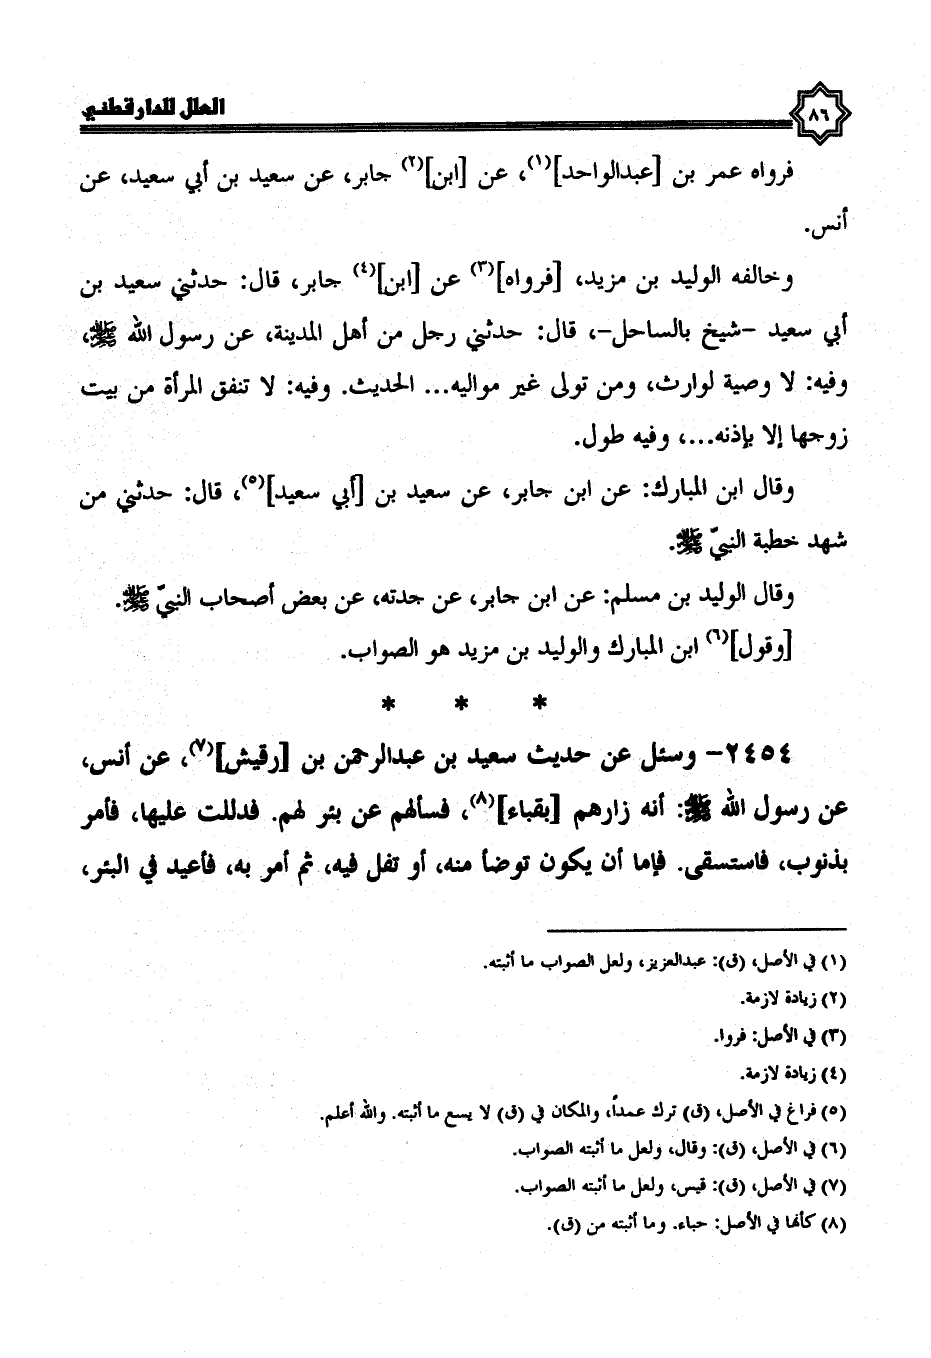 العلل للدارقطني
٨٦
فرواه عمر بن [عبدالواحد](١)، عن [ابن](٢) جابر، عن سعيد بن أبي سعيد، عن
أنس.
وخالفه الوليد بن مزيد، [فرواه](٣) عن [ابن](٤) جابر، قال: حدثني سعيد بن
أبي سعيد -شيخ بالساحل-، قال: حدثني رجل من أهل المدينة، عن رسول الله ﷺ،
وفيه: لا وصية لوارث، ومن تولى غير مواليه... الحديث. وفيه: لا تنفق المرأة من بيت
زوجها إلا بإذنه...، وفيه طول.
وقال ابن المبارك: عن ابن جابر، عن سعيد بن [أبي سعيد](٥)، قال: حدثني من
شهد خطبة النبيّ ﷺ.
وقال الوليد بن مسلم: عن ابن جابر، عن جدته، عن بعض أصحاب النبيّ ﷺ.
[وقول](٦) ابن المبارك والوليد بن مزيد هو الصواب.
* * *
٢٤٥٤- وسئل عن حديث سعيد بن عبدالرحمن بن [رقيش](٧)، عن أنس،
عن رسول الله ﷺ: أنه زارهم [بقباء](٨)، فسألهم عن بئر لهم. فدللت عليها، فأمر
بذنوب، فاستسقى. فإما أن يكون توضأ منه، أو تفل فيه، ثم أمر به، فأعيد في البئر،
(١) في الأصل، (ق): عبدالعزيز، ولعل الصواب ما أثبته.
(٢) زيادة لازمة.
(٣) في الأصل: فروا.
(٤) زيادة لازمة.
(٥) فراغ في الأصل، (ق) ترك عمداً، والمكان في (ق) لا يسع ما أثبته. والله أعلم.
(٦) في الأصل، (ق): وقال، ولعل ما أثبته الصواب.
(٧) في الأصل، (ق): قيس، ولعل ما أثبته الصواب.
(٨) كأنها في الأصل: حباء. وما أثبته من (ق).